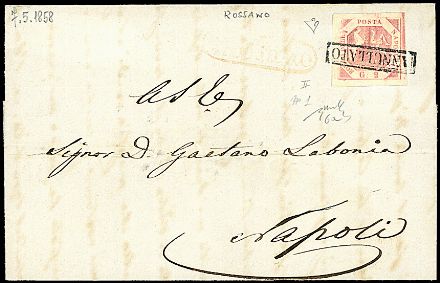 7.5.1858
ROSSANO
POSTA
G. 2
ANNULLATO
A S. E.
Signor D. Gaetano Labonia
Napoli